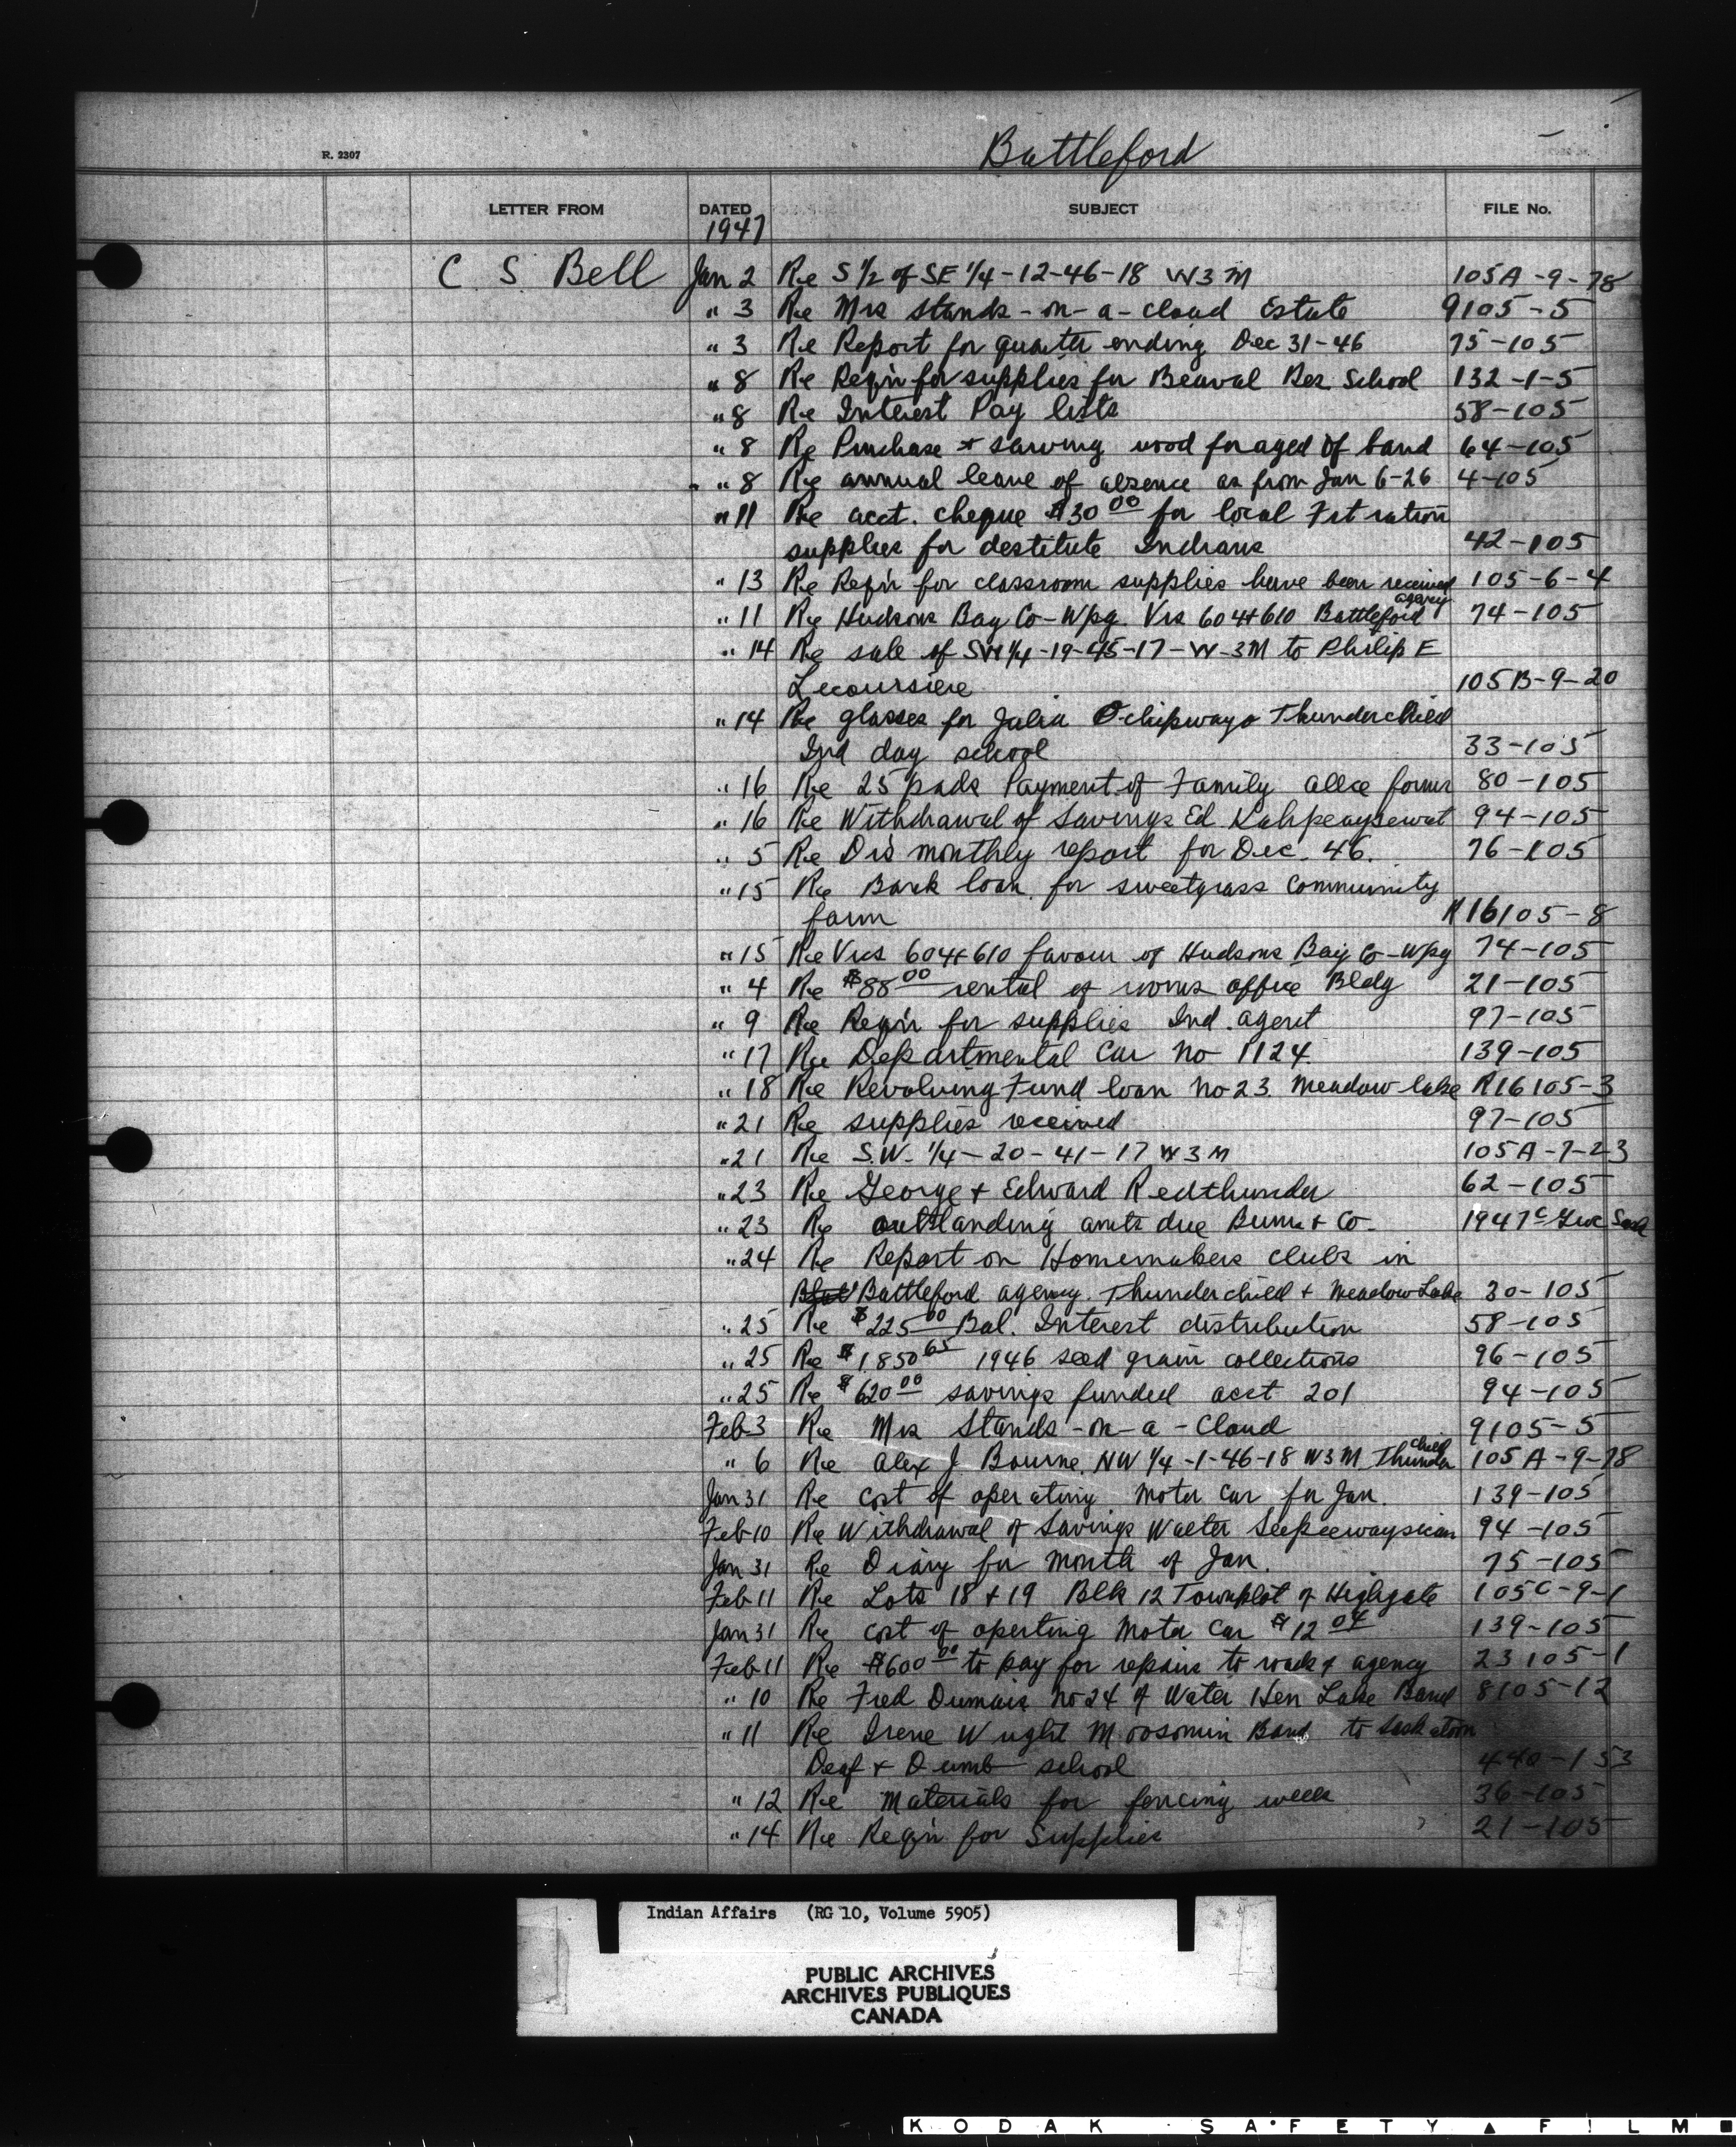 Battleford
R. 2307
LETTER FROM DATED SUBJECT FILE No.
1947
C S Bell Jan 2 Re S 1/2 of SE 1/4 - 12-46-18 W3M 105A-9-28
" 3 Re Mrs Stands-on-a-cloud Estate 9105-5
" 3 Re Report for quarter ending Dec 31-46 75-105
" 8 Re Reqn for supplies for Beauval Res School 132-1-5
" 8 Re Interest Pay lists 58-105
" 8 Re Purchase + sawing wood for aged of band 64-105
" 8 Re annual leave of absence as from Jan 6-26 4-105
" 11 Re acct. cheque $30 00 for local Frt ration
supplies for destitute Indians 42-105
" 13 Re Reqn for classroom supplies have been received 105-6-4
" 11 Re Hudsons Bay Co-Wpg. Vrs 604+610 Battleford agency 74-105
" 14 Re sale of SW 1/4-19-45-17-W-3M to Philip E
Lecoursiere 105B-9-20
" 14 Re glasses for Julia Ochipwayo Thunderchild
Ind day school 33-105
" 16 Re 25 pads Payment of Family allce forms 80-105
" 16 Re Withdrawal of Savings Ed Kahpeaysewat 94-105
" 5 Re Drs monthly report for Dec. 46. 76-105
" 15 Re Bank loan for sweetgrass Community
farm R16105-8
" 15 Re Vrs 604+610 favour of Hudsons Bay Co-Wpg 74-105
" 4 Re $88 00 rental of rooms office Bldg 21-105
" 9 Re Reqn for supplies Ind. agent 97-105
" 17 Re Departmental Car No 1124 139-105
" 18 Re Revolving Fund loan No 23. Meadow lake R16105-3
" 21 Re supplies received 97-105
" 21 Re S.W. 1/4-20-41-17 W3M 105A-7-23
" 23 Re George + Edward Redthunder 62-105
" 23 Re outstanding amts due Burns + Co- 1947
" 24 Re Report on Homemakers clubs in
Battleford agency. Thunderchild + Meadow Lake 30-105
" 25 Re $225 00 Bal. Interest distribution 58-105
" 25 Re $1,850 65 1946 seed grain collections 96-105
" 25 Re $620 00 savings funded acct 201 94-105
Feb 3 Re Mrs Stands-on-a-Cloud 9105-5
" 6 Re Alex J Bourne. NW 1/4-1-46-18 W3M Thunder child 105A-9-28
Jan 31 Re cost of operating Motor car for Jan. 139-105
Feb 10 Re Withdrawal of Savings Walter 94-105
Jan 31 Re Diary for month of Jan. 75-105
Feb 11 Re Lots 18+19 Blk 12 Townplot of Highgate 105C-9-1
Jan 31 Re cost of operting Motor Car $12 04 139-105
Feb 11 Re $600 00 to pay for repairs to roads of agency 23105-1
" 10 Re Fred Dumais No 24 of Water Hen Lake Band 8105-12
" 11 Re Irene Wright Moosomin Band to Saskatoon
Deaf + Dumb school 440-153
" 12 Re Materials for fencing wells 36-105
" 14 Re Reqn for Supplies 21-105
Indian Affairs (RG 10, Volume 5905)
PUBLIC ARCHIVES
ARCHIVES PUBLIQUES
CANADA
KODAK SAFETY FILM